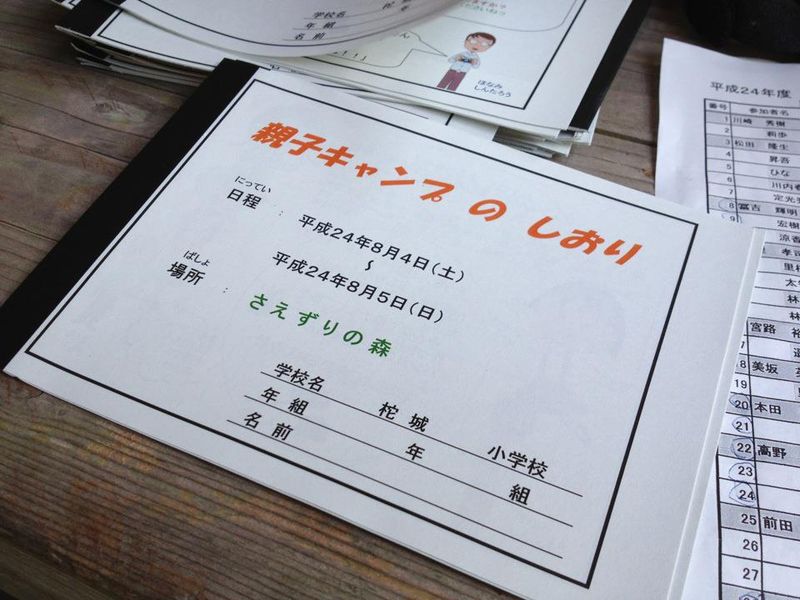 学校名 柁
年 組
名 前
ほなみ
しんたろう
親子キャンプ の しおり
にってい
日程 : 平成24年8月4日(土)
~
平成24年8月5日(日)
ばしょ
場所 : さえずりの森
学校名 柁 城 小学校
年 組 年 組
名 前
平成24年度
番号 参加者名
1 川崎 秀樹
2 莉歩
3 松田 隆生
4 昇吾
5 ひな
6 川内
7 定光
8 冨吉 輝明
9 宏樹
涼香
林
宮路
8 美坂
19
20 本田
21
22 高野
23
24
25 前田
26
27